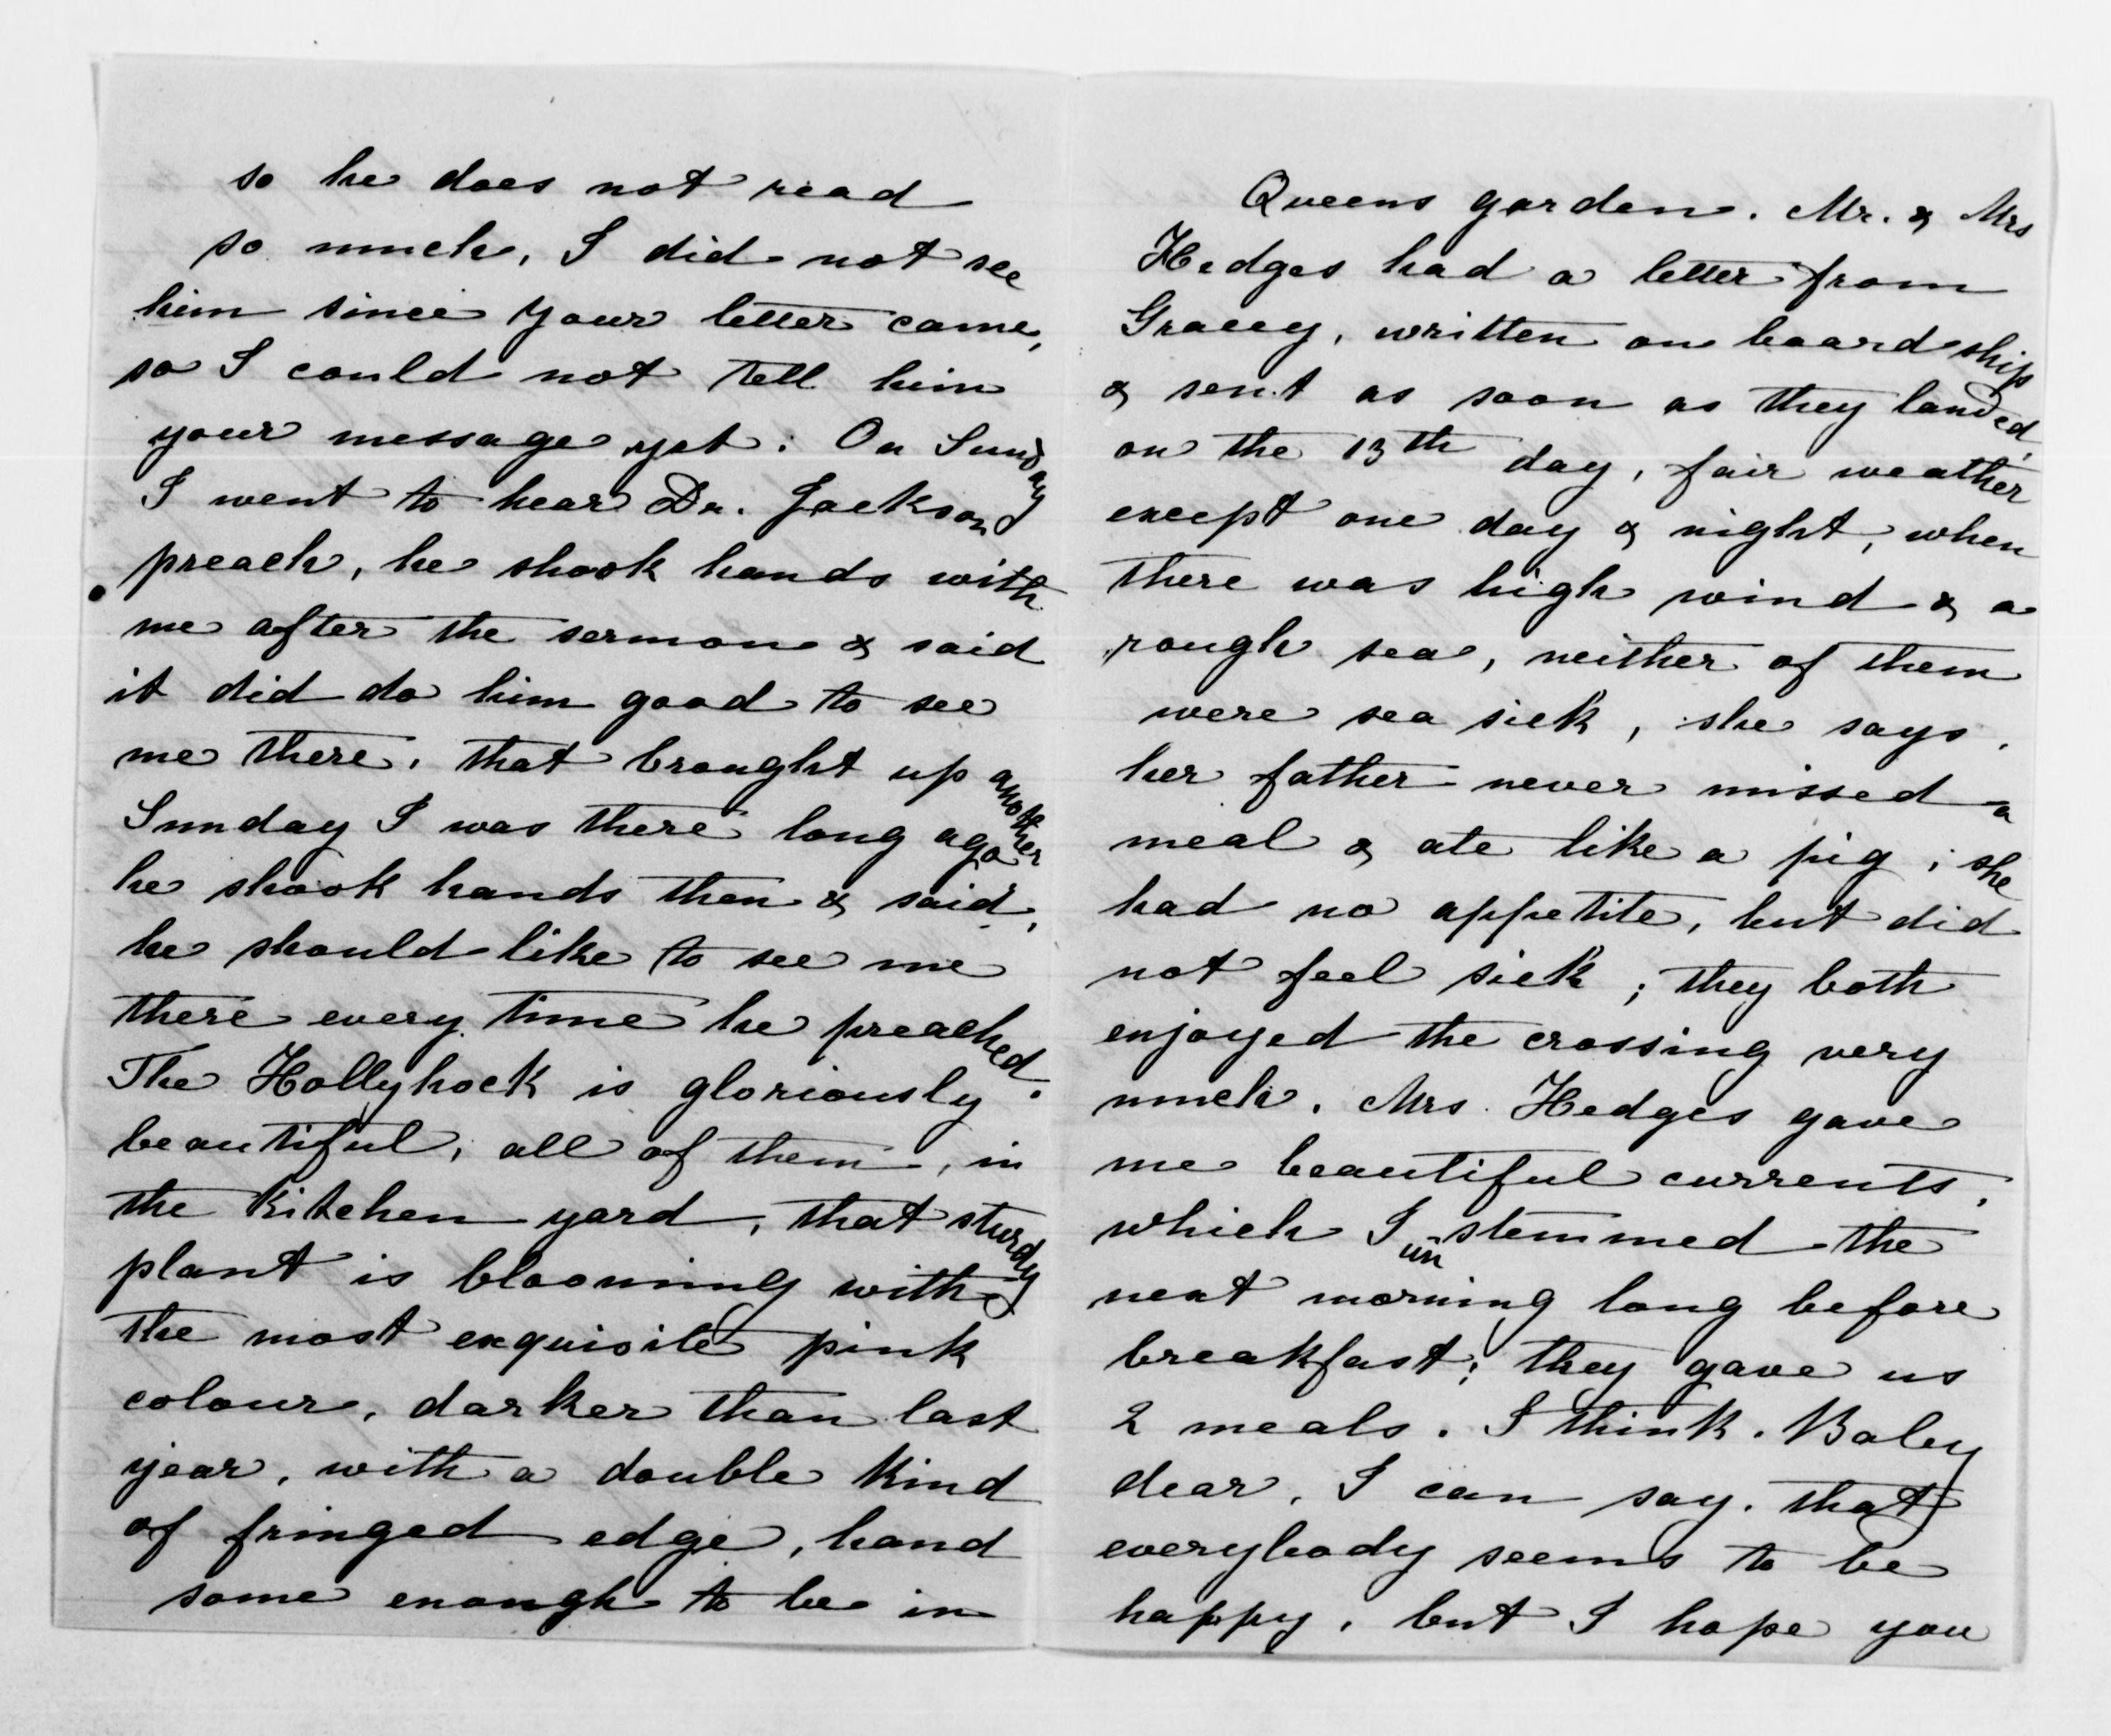 so he does not read
so much, I did not see
him since your letter came,
so I could not tell him
your message yet. On Sunday
I went to hear Dr. Jackson
preach, he shook hands with
me after the sermon & said
it did do him good to see
me there, that brought up another
Sunday I was there long ago
he shook hands then & said,
he should like to see me
there every time he preached.
The Hollyhock is gloriously
beautiful, all of them, in
the kitchen yard, that sturdy
plant is blooming with
the most exquisite pink
colour, darker than last
year, with a double kind
of fringed edge, hand
some enough to be in
Queens garden. Mr. & Mrs
Hedges had a letter from
Gracey, written on board ship
& sent as soon as they landed,
on the 13th day, fair weather
except one day & night, when
there was high wind & a
rough sea, neither of them
were sea sick, she says,
her father never missed a
meal & ate like a pig; she
had no appetite, but did
not feel sick; they both
enjoyed the crossing very
much. Mrs. Hedges gave
me beautiful currents,
which I unstemmed the
next morning long before
breakfast; they gave us
2 meals. I think. Baby
dear, I can say, that
everybody seems to be
happy, but I hope you